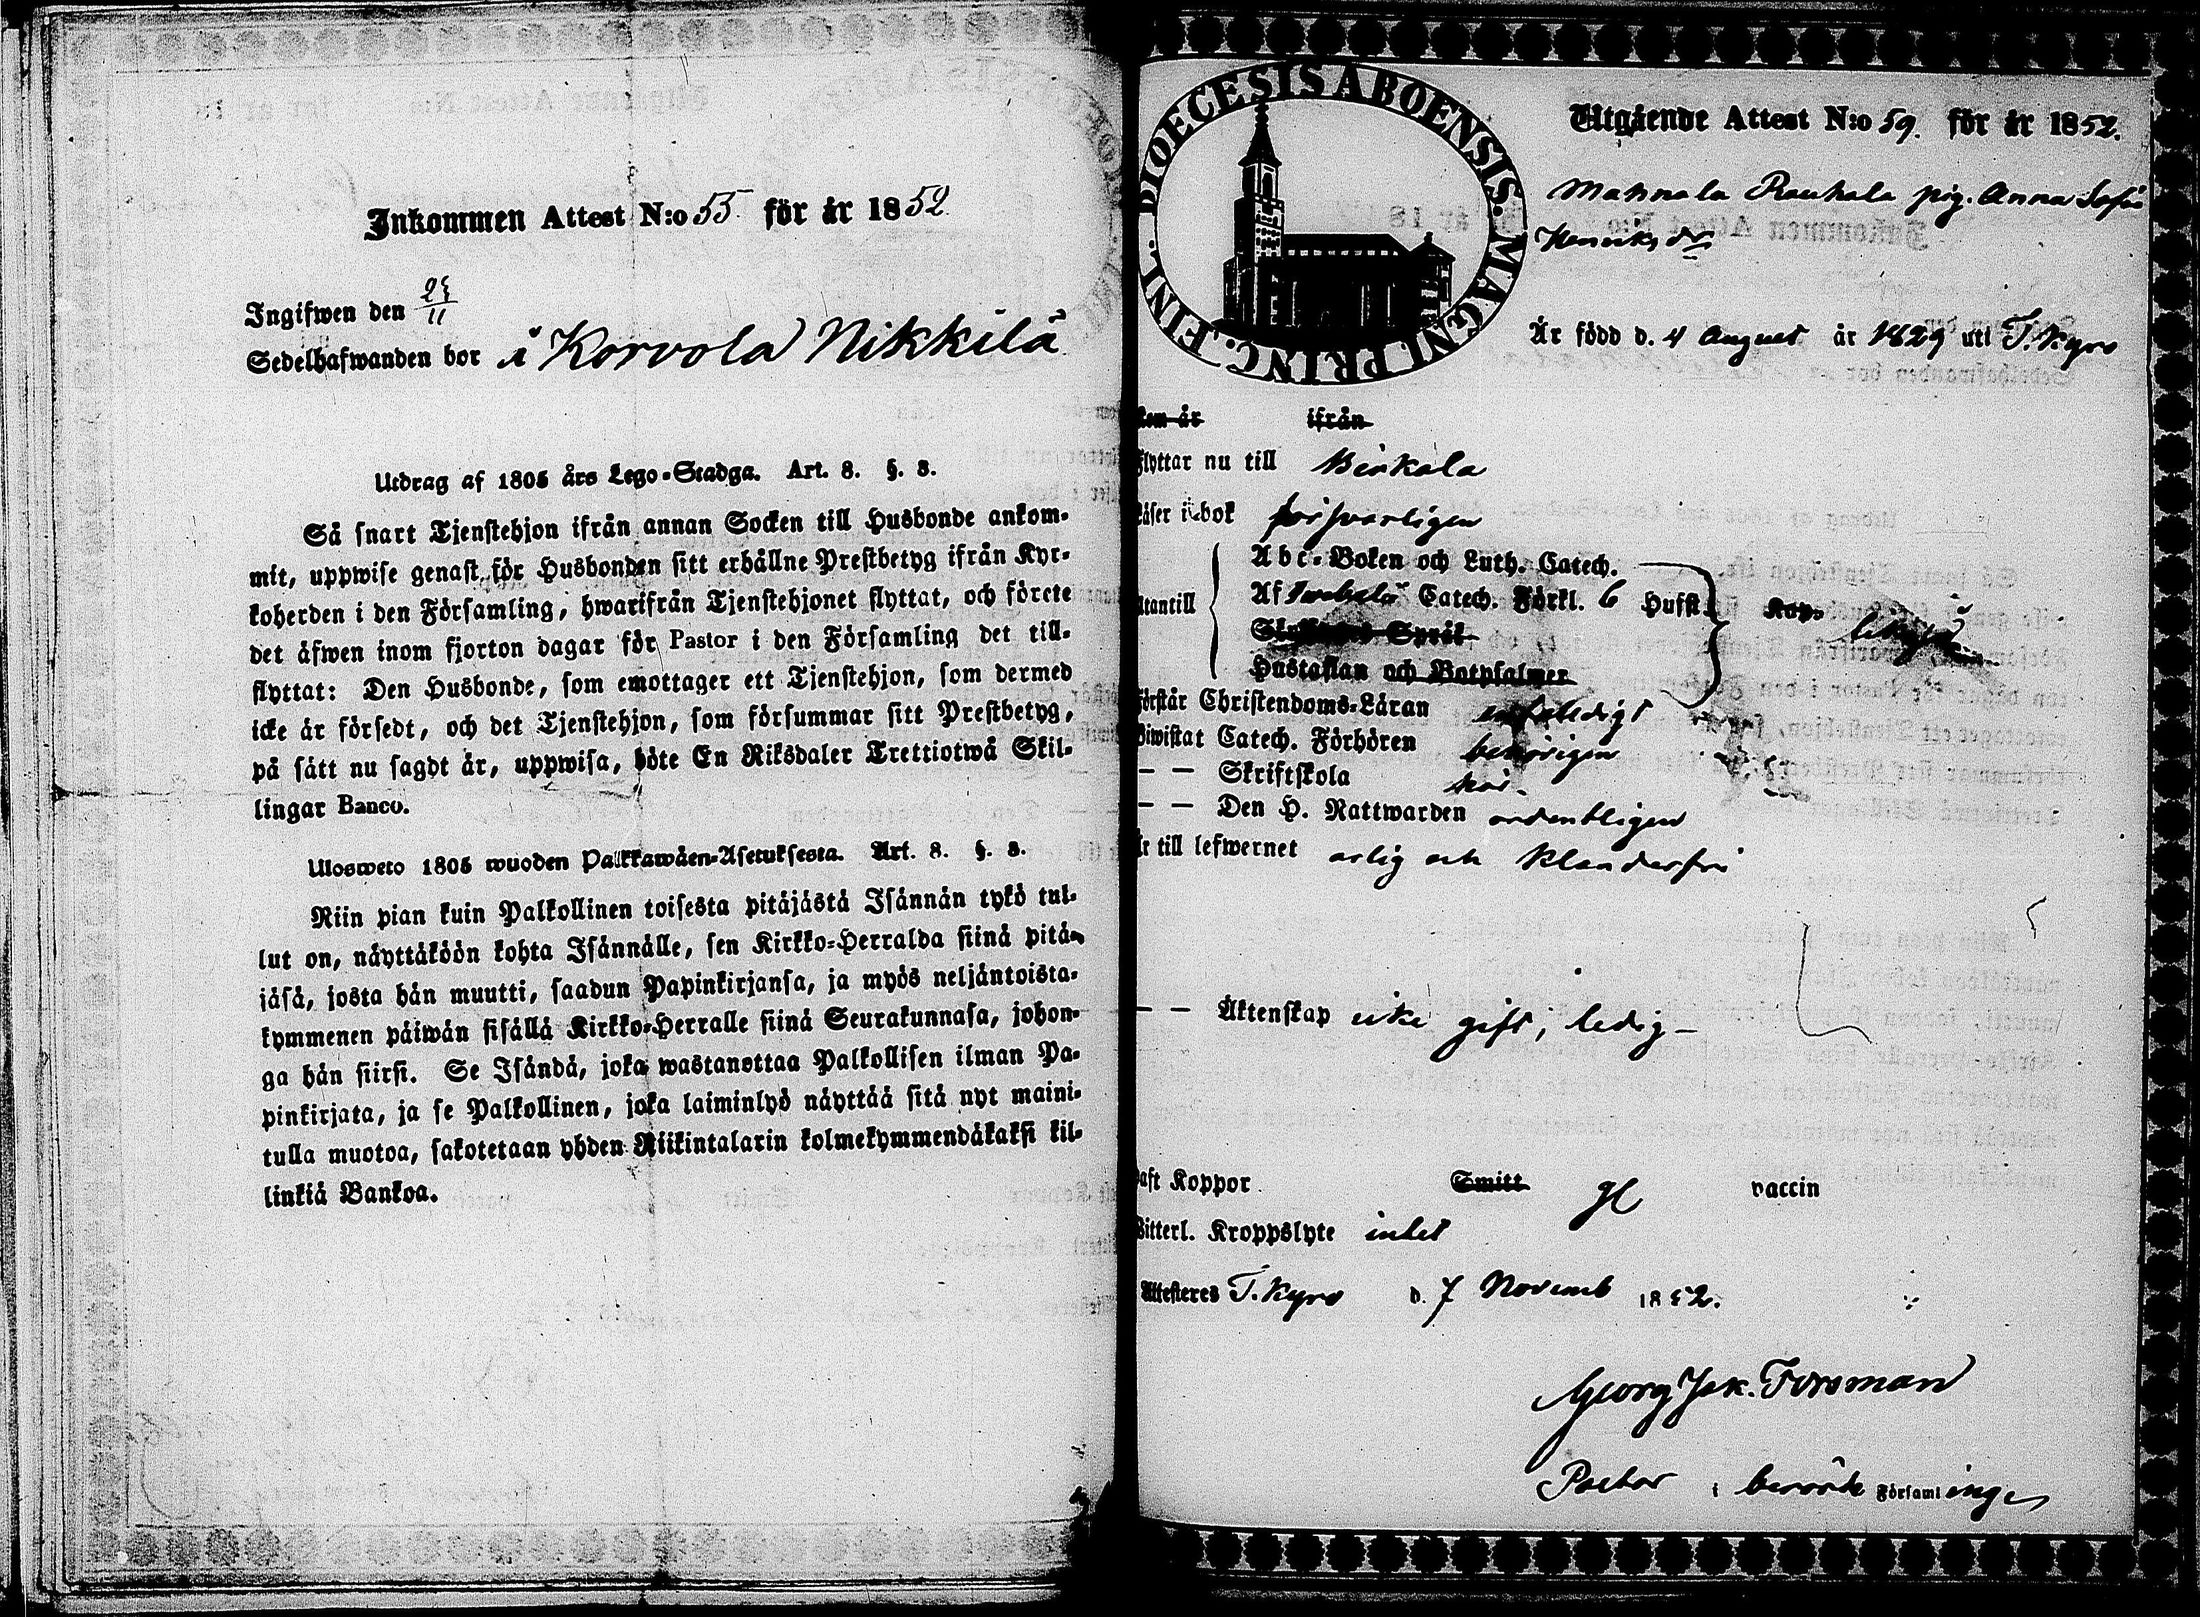 Inkommen Attest N:o 55 för år 1852
Ingifwen den
Sedelhafwanden bor i Korvola Nikkilä
Utdrag af 1805 års Lego-Stadga. Art. 8. §. 8.
Så snart Tjenstehjon ifrån annan Socken till Husbonde ankom-
mit, uppwise genast för Husbonden sitt erhållne Prestbetyg ifrån Kyr-
koherden i den Församling, hwarifrån Tjenstehjonet flyttat, och förete
det äfwen inom fjorton dagar för Pastor i den Församling det till-
flyttat: Den Husbonde, som emottager ett Tjenstehjon, som dermed
icke är försedt, och det Tjenstehjon, som försummar sitt Prestbetyg,
på sätt nu sagdt är, uppwisa, böte En Riksdaler Trettiotwå Skil-
lingar Banco.
Ulosweto 1805 wuoden Palkkawäen-Asetuksesta. Art. 8. §. 8.
Niin pian kuin Palkollinen toisesta pitäjästä Isännän tykö tul-
lut on, näyttäköön kohta Isännälle, sen Kirkko-Herralda siinä pitä-
jäsä, josta hän muutti, saadun Papinkirjansa, ja myös neljäntoista-
kymmenen päiwän sisällä Kirkko-Herralle siinä Seurakunnasa, johon-
ga hän siirsi. Se Isändä, joka wastanottaa Palkollisen ilman Pa-
pinkirjata, ja se Palkollinen, joka laiminlyö näyttää sitä nyt maini-
tulla muotoa, sakotetaan yhden Riikintalarin kolmekymmendäkaksi kil-
linkiä Bankoa.
DIOECESIS ABOENSIS. MAGNI PRINC. FINL.
Utgående Attest N:o 59. för år 1852.
Mannala Rauhala pig. Anna Sofia
Henriks dr
Är född d. 4 August år 1829 uti T. Kyro
kom år ifrån
flyttar nu till Birkala
läser i bok försvarligen
Abc-Boken och Luth. Catech.
utantill Af Svebelii Catech. Förkl. 6 Hufst.
Språk
Hustaflan och Botpsalmer
förstår Christendoms-Läran enfaldigt
Biwistat Catech. Förhören behörigen
— — Skriftskola
— — Den H. Nattwarden ordentligen
Är till lefwernet ärlig och klanderfri
— — Äktenskap icke gift, ledig —
Haft Koppor Smitt vaccin
Witterl. Kroppslyte intet
Attesteres T. Kyro d. 7 Novemb 1852.
Georg Jak. Forsman
Pastor i berörde Församlingen